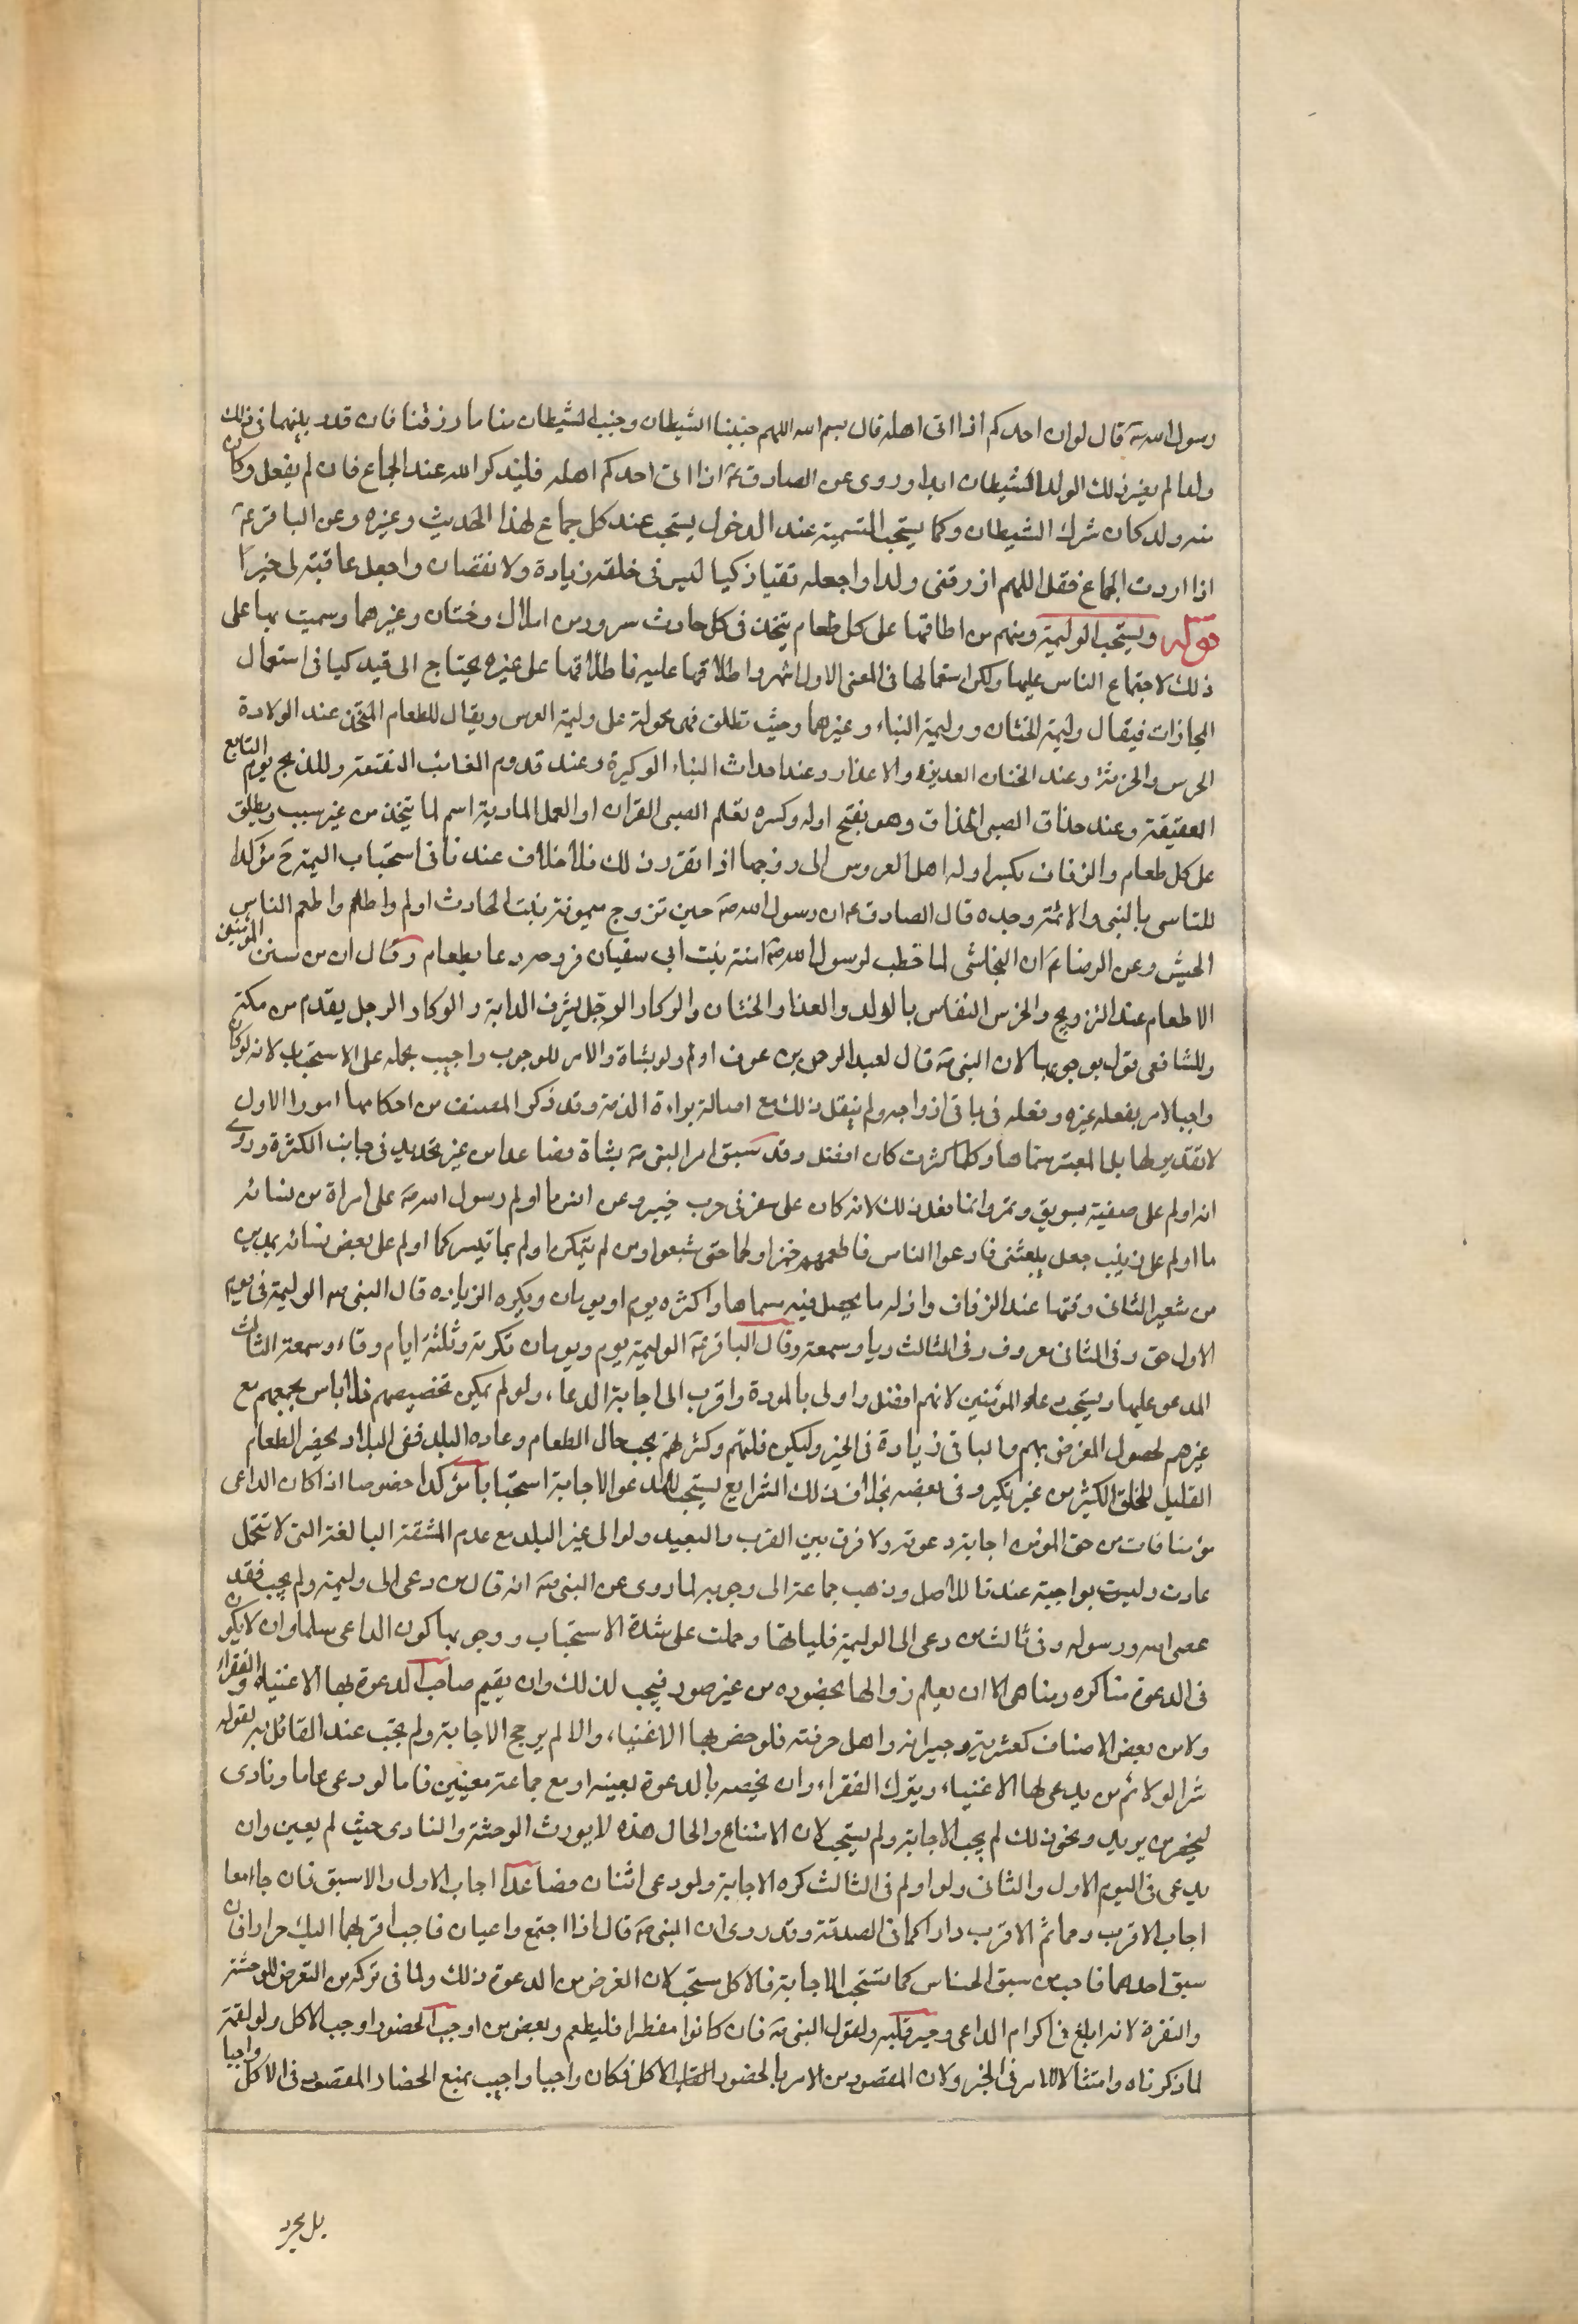 رسول الله ص قال لو ان احدكم اذا اتى اهله قال بسم الله اللهم جنبنا الشيطان وجنب الشيطان منا ما رزقنا فان قدر بينهما فى ذلك
ولدا لم يضر ذلك الولد الشيطان ابدا وروى عن الصادق ع اذا اتى احدكم اهله فليذكر الله عند الجماع فان لم يفعل وكان
منه ولد كان شرك الشيطان وكما يستحب التسمية عند الدخول يستحب عند كل جماع لهذا الحديث وغيره وعن الباقر ع
اذا اردت الجماع فقل اللهم ارزقنى ولدا واجعله تقيا زكيا ليس فى خلقه زيادة ولا نقصان واجعل عاقبته الى خير
قوله ويستحب الوليمة ومنهم من اطلقها على كل طعام يتخذ فى كل حادث سرور من املاك وختان وغيرهما وسميت بها على
ذلك لاجتماع الناس عليها ولكن استعمالها فى المعنى الاول اشهر واطلاقها عليه فاطلاقها على غيره يحتاج الى قيد كما فى استعمال
المجازات فيقال وليمة الختان ووليمة البناء وغيرهما وحيث تطلق فهى محمولة على وليمة العرس ويقال للطعام المتخذ عند الولادة
الخرس والخرسة وعند الختان العذيرة والاعذار وعند احداث البناء الوكيرة وعند قدوم الغائب النقيعة وللذبح يوم السابع
العقيقة وعند حذاق الصبى الحذاق وهو بفتح اوله وكسره تعلم الصبى القران او العمل المادبة اسم لما يتخذ من غير سبب ويطلق
على كل طعام والزفاف بكسر اوله اهداء العروس الى زوجها اذا تقرر ذلك فلا خلاف عندنا فى استحباب الوليمة ح مؤكدا
للتاسى بالنبى والائمة وجده قال الصادق ع ان رسول الله ص حين تزوج ميمونة بنت الحارث اولم واطعم الناس
الحيس وعن الرضا ع ان النجاشى لما خطب لرسول الله ص امنة بنت ابى سفيان فزوجه دعا بطعام وقال ان من سنن المرسلين
الاطعام عند التزويج والخرس النفاس بالولد والعذار الختان والوكار الرجل يشترى الدابة والوكار الرجل يقدم من مكة
وللشافعى قول بوجوبها لان النبى ص قال لعبد الرحمن بن عوف اولم ولو بشاة والامر للوجوب واجيب بحمله على الاستحباب لانه لو كان
واجبا لامر بفعله غيره وفعله فى باقى ازواجه ولم ينقل ذلك مع اصالة براءة الذمة وقد ذكر المصنف من احكامها امورا الاول
لا تقدير لها بل المعتبر مسماها وكلما كثرت كان افضل وقد سبق امر النبى ص بشاة فصاعدا من غير تحديد فى جانب الكثرة وروى
انه اولم على صفية بسويق وتمر وانما فعل ذلك لانه كان على سفر فى حرب خيبر وعن انس ما اولم رسول الله ص على امراة من نسائه
ما اولم على زينب جعل يبعثنى فادعوا الناس فاطعمهم خبزا ولحما حتى شبعوا ومن لم يتمكن اولم بما تيسر كما اولم على بعض نسائه بمدين
من شعير الثانى وقتها عند الزفاف واقله ما يحصل فيه مسماها واكثره يوم او يومان ويكره الزيادة قال النبى ص الوليمة فى يوم
الاول حق وفى الثانى معروف وفى الثالث رياء وسمعة وقال الباقر ع الوليمة يوم ويومان مكرمة وثلثة ايام رياء وسمعة الثالث
المدعو عليها ويستحب دعاء المؤمنين لانهم افضل واولى بالمودة واقرب الى اجابة الدعاء ولو لم يمكن تخصيصهم فلا باس بجمعهم مع
غيرهم لحصول الغرض بهم والباقى زيادة فى الخير وليكن قلتهم وكثرتهم بحسب حال الطعام وعادة البلد ففى البلاد يحضر الطعام
القليل للخلق الكثير من غير نكير وفى بعضه بخلاف ذلك الرابع يستحب للمدعو الاجابة استحبابا مؤكدا خصوصا اذا كان الداعى
مؤمنا فان من حق المؤمن اجابة دعوته ولا فرق بين القرب والبعيد ولو الى غير البلد مع عدم المشقة البالغة التى لا تتحمل
عادة وليست بواجبة عندنا للاصل وذهب جماعة الى وجوبه لما روى عن النبى ص انه قال من دعى الى وليمة ولم يجب فقد
عصى الله ورسوله وفى ثالث من دعى الى الوليمة فلياتها وحملت على شدة الاستحباب ووجوبها كون الداعى مسلما وان لا يكون
فى الدعوة مناكره ومناهى الا ان يعلم زوالها بحضوره من غير ضرر فيجب لذلك وان يقيم صاحب الدعوة بها الاغنياء والفقراء
ولا من بعض الاصناف كعشيرته وجيرانه واهل حرفته فلو خص بها الاغنياء والا لم يرجح الاجابة ولم يجب عند القائل به لقوله
شر الولائم من يدعى لها الاغنياء ويترك الفقراء وان يخصه بالدعوة بعينه او مع جماعة معينين فاما لو دعى عاما ونادى
ليحضر من يريد ونحو ذلك لم يجب الاجابة ولم يستحب لان الامتناع والحال هذه لا يورث الوحشة والتاذى حيث لم يعين وان
يدعى فى اليوم الاول والثانى ولو اولم فى الثالث كره الاجابة ولو دعى اثنان فصاعدا اجاب الاول والاسبق فان جاءا معا
اجاب الاقرب رحما ثم الاقرب دارا كما فى الصدقة وقد روى ان النبى ص قال اذا اجتمع داعيان فاجب اقربهما اليك جوارا فان
سبق احدهما فاجب من سبق الخامس كما تستحب الاجابة فالاكل مستحب لان الغرض من الدعوة ذلك ولما فى تركه من التعرض للوحشة
والنفرة لانه ابلغ فى اكرام الداعى وجبر قلبه ولقول النبى ص فان كانوا مفطرا فليطعم وبعض من اوجب الحضور اوجب الاكل ولو لقمة
لما ذكرناه وامتثالا للامر فى الخبر ولان المقصود من الامر بالحضور الاكل فكان واجبا واجيب بمنع انحصار المقصود فى الاكل واجبا
بل مجرد